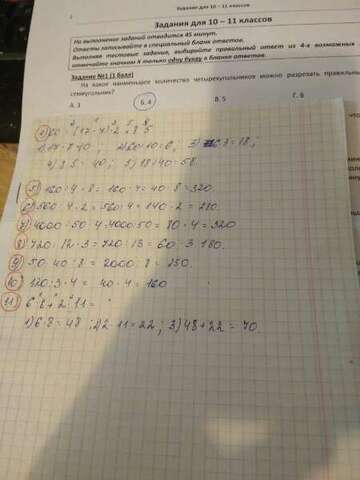 Задания для 10 – 11 классов
Задания для 10 – 11 классов
На выполнение заданий отводится 45 минут.
Ответы записывайте в специальный бланк ответов.
Выполняя тестовые задания, выбирайте правильный ответ из 4-х возможных
отмечайте значком X только одну букву в бланке ответов.
Задание №1 (1 балл)
На какое наименьшее количество четырехугольников можно разрезать правильный
семиугольник?
А. 3 Б. 4 В. 5 Г. 6
4) 35 = 40; 5) 18+40=58
5) 160 : 4 · 8 = 160 : 4 = 40 · 8 = 320
6) 560 : 4 · 2 = 560 : 4 = 140 · 2 = 280
7) 4000 : 50 · 4 = 4000 : 50 = 80 · 4 = 320
8) 720 : 12 · 3 = 720 : 12 = 60 · 3 = 180.
9) 50 · 40 : 8 = 2000 : 8 = 250.
10) 120 : 3 · 4 = 40 · 4 = 160
11) 6 · 8 + 2 · 11 =
1) 6 · 8 = 48 ; 2) 2 · 11 = 22 ; 3) 48 + 22 = 70.